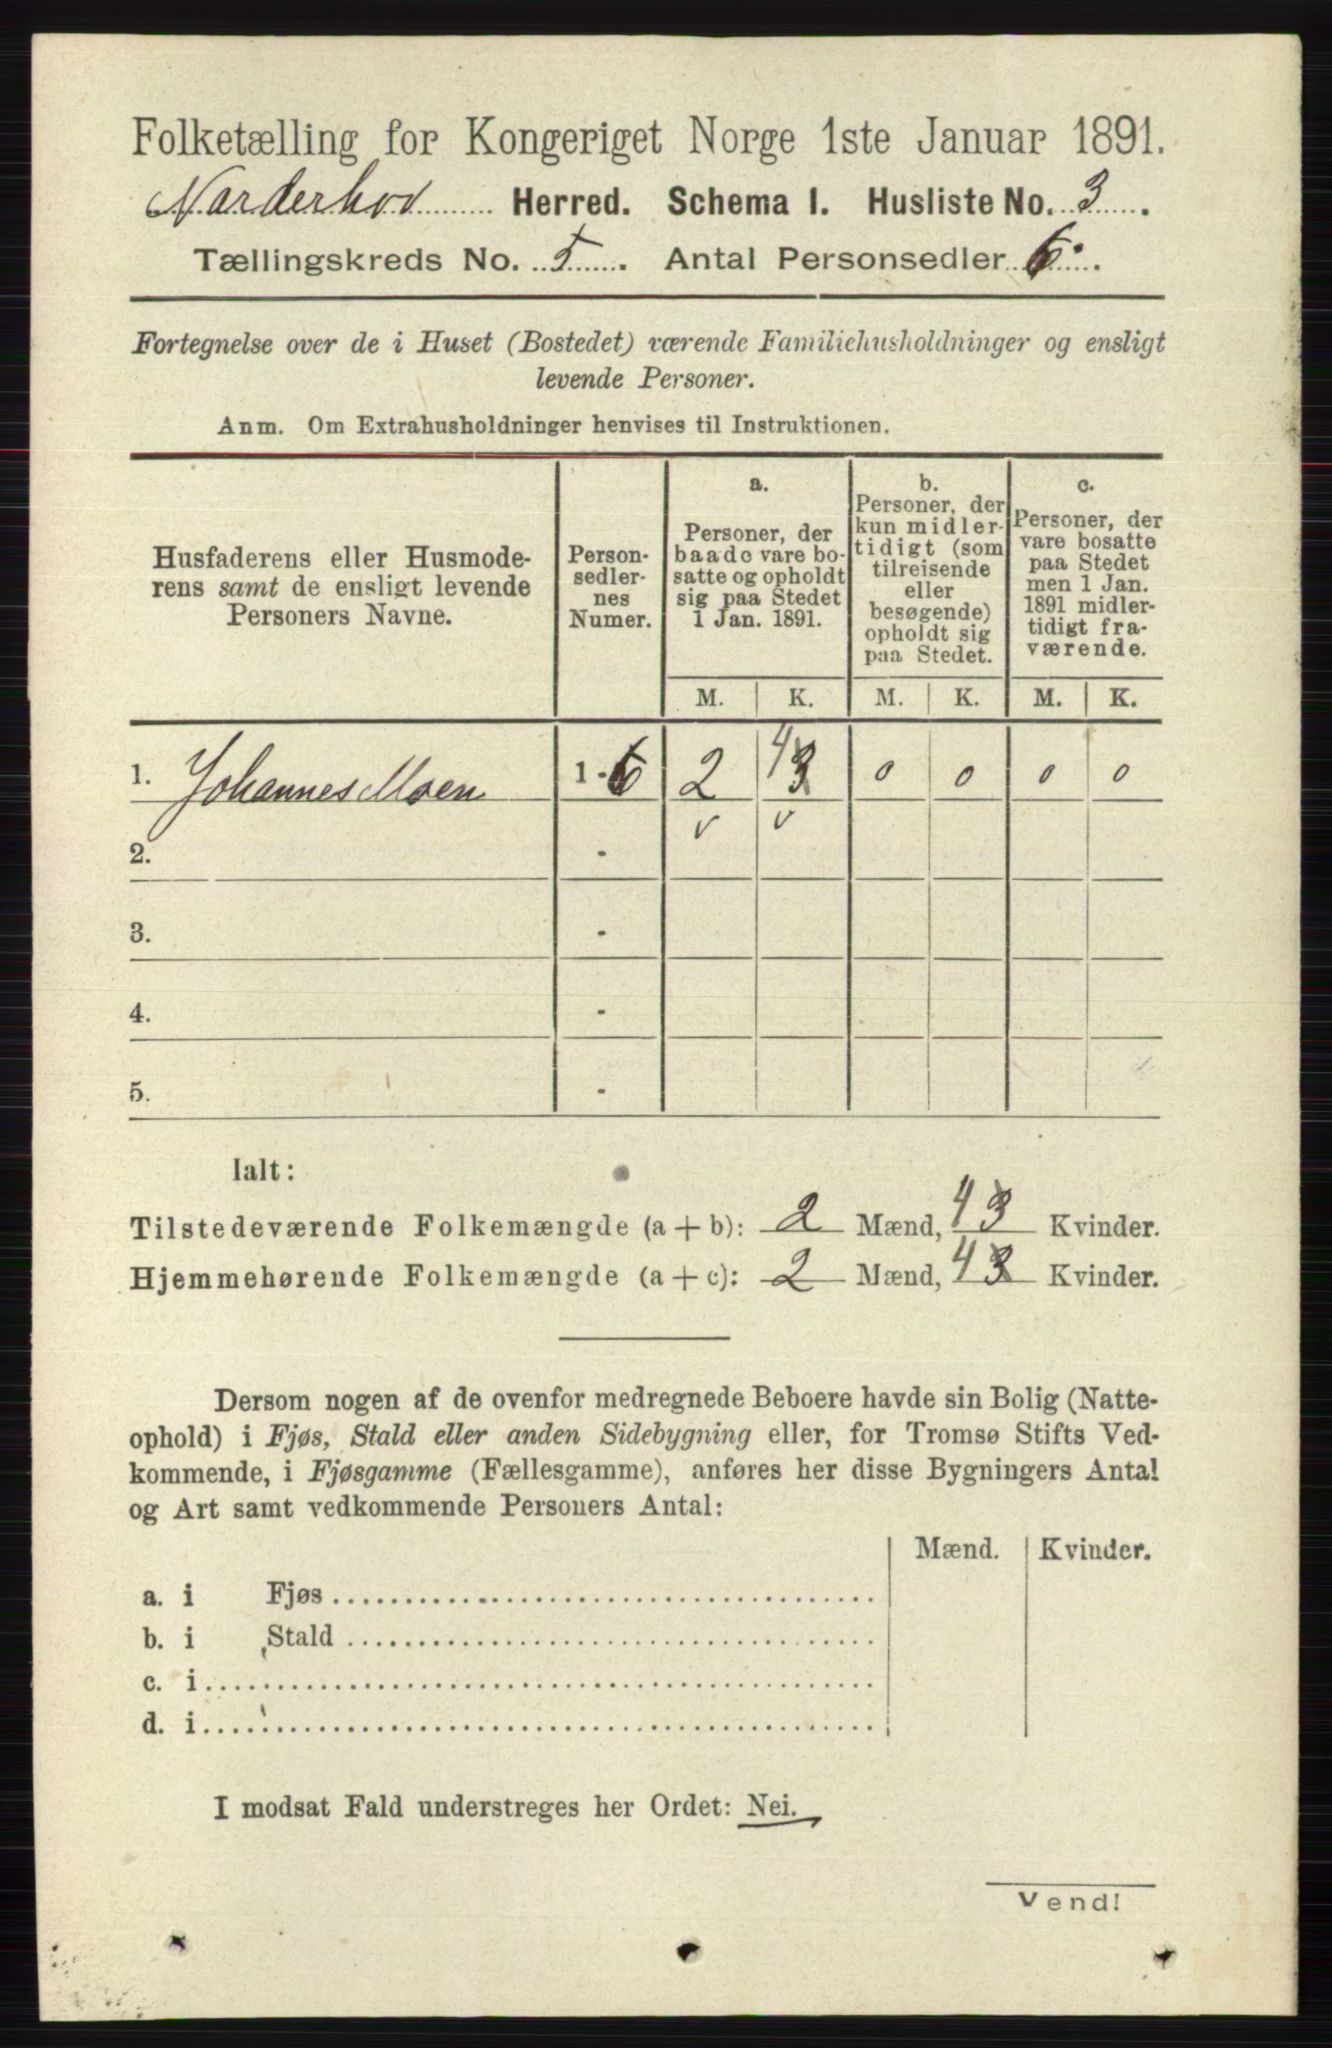 Folketælling for Kongeriget Norge 1ste Januar 1891.
Narderhov Herred. Schema I. Husliste No. 3.
Tællingskreds No. 5. Antal Personsedler 6.
Fortegnelse over de i Huset (Bostedet) værende Familiehusholdninger og ensligt
levende Personer.
Anm. Om Extrahusholdninger henvises til Instruktionen.
Husfaderens eller Husmode-
rens samt de ensligt levende
Personers Navne.
Person-
sedler-
nes
Numer.
a.
Personer, der
baade vare bo-
satte og opholdt
sig paa Stedet
1 Jan. 1891.
b.
Personer, der
kun midler-
tidigt (som
tilreisende
eller
besøgende)
opholdt sig
paa Stedet.
c.
Personer, der
vare bosatte
paa Stedet
men 1 Jan.
1891 midler-
tidigt fra-
værende.
M. K. M. K. M. K.
1. Johannes Moen 1 - 6 2 4 3 0 0 0 0
v v
2. -
3. -
4. -
5. -
Ialt:
Tilstedeværende Folkemængde (a + b): 2 Mænd, 4 3 Kvinder.
Hjemmehørende Folkemængde (a + c): 2 Mænd, 4 3 Kvinder.
Dersom nogen af de ovenfor medregnede Beboere havde sin Bolig (Natte-
ophold) i Fjøs, Stald eller anden Sidebygning eller, for Tromsø Stifts Ved-
kommende, i Fjøsgamme (Fællesgamme), anføres her disse Bygningers Antal
og Art samt vedkommende Personers Antal:
Mænd. Kvinder.
a. i Fjøs
b. i Stald
c. i
d. i
I modsat Fald understreges her Ordet: Nei.
Vend!